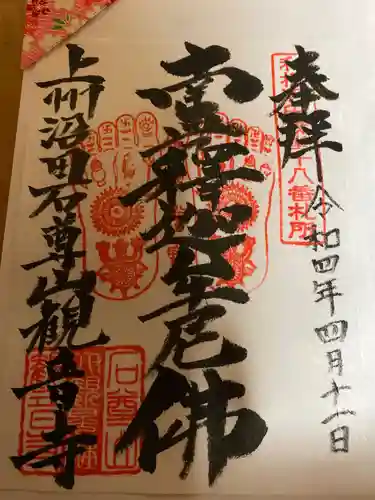 奉拝
令和四年四月十一日
八番札所
釋迦牟尼佛
上州沼田石尊山観音寺
石尊山